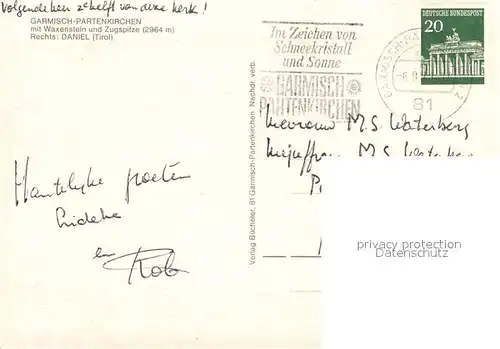 Volgende keer zelf van deze kerk!
GARMISCH-PARTENKIRCHEN
mit Waxenstein und Zugspitze (2964 m)
Rechts: DANIEL (Tirol)
Im Zeichen von
Schneekristall
und Sonne
GARMISCH
PARTENKIRCHEN
DEUTSCHE BUNDESPOST
20
GARMISCH-PA
81
Verlag Bücheler, 81 Garmisch-Partenkirchen Nachdr. verb.
Mevrouw M.S. Waterberg
M S
Hartelyke groeten
en
Rob
privacy protection
Datenschutz